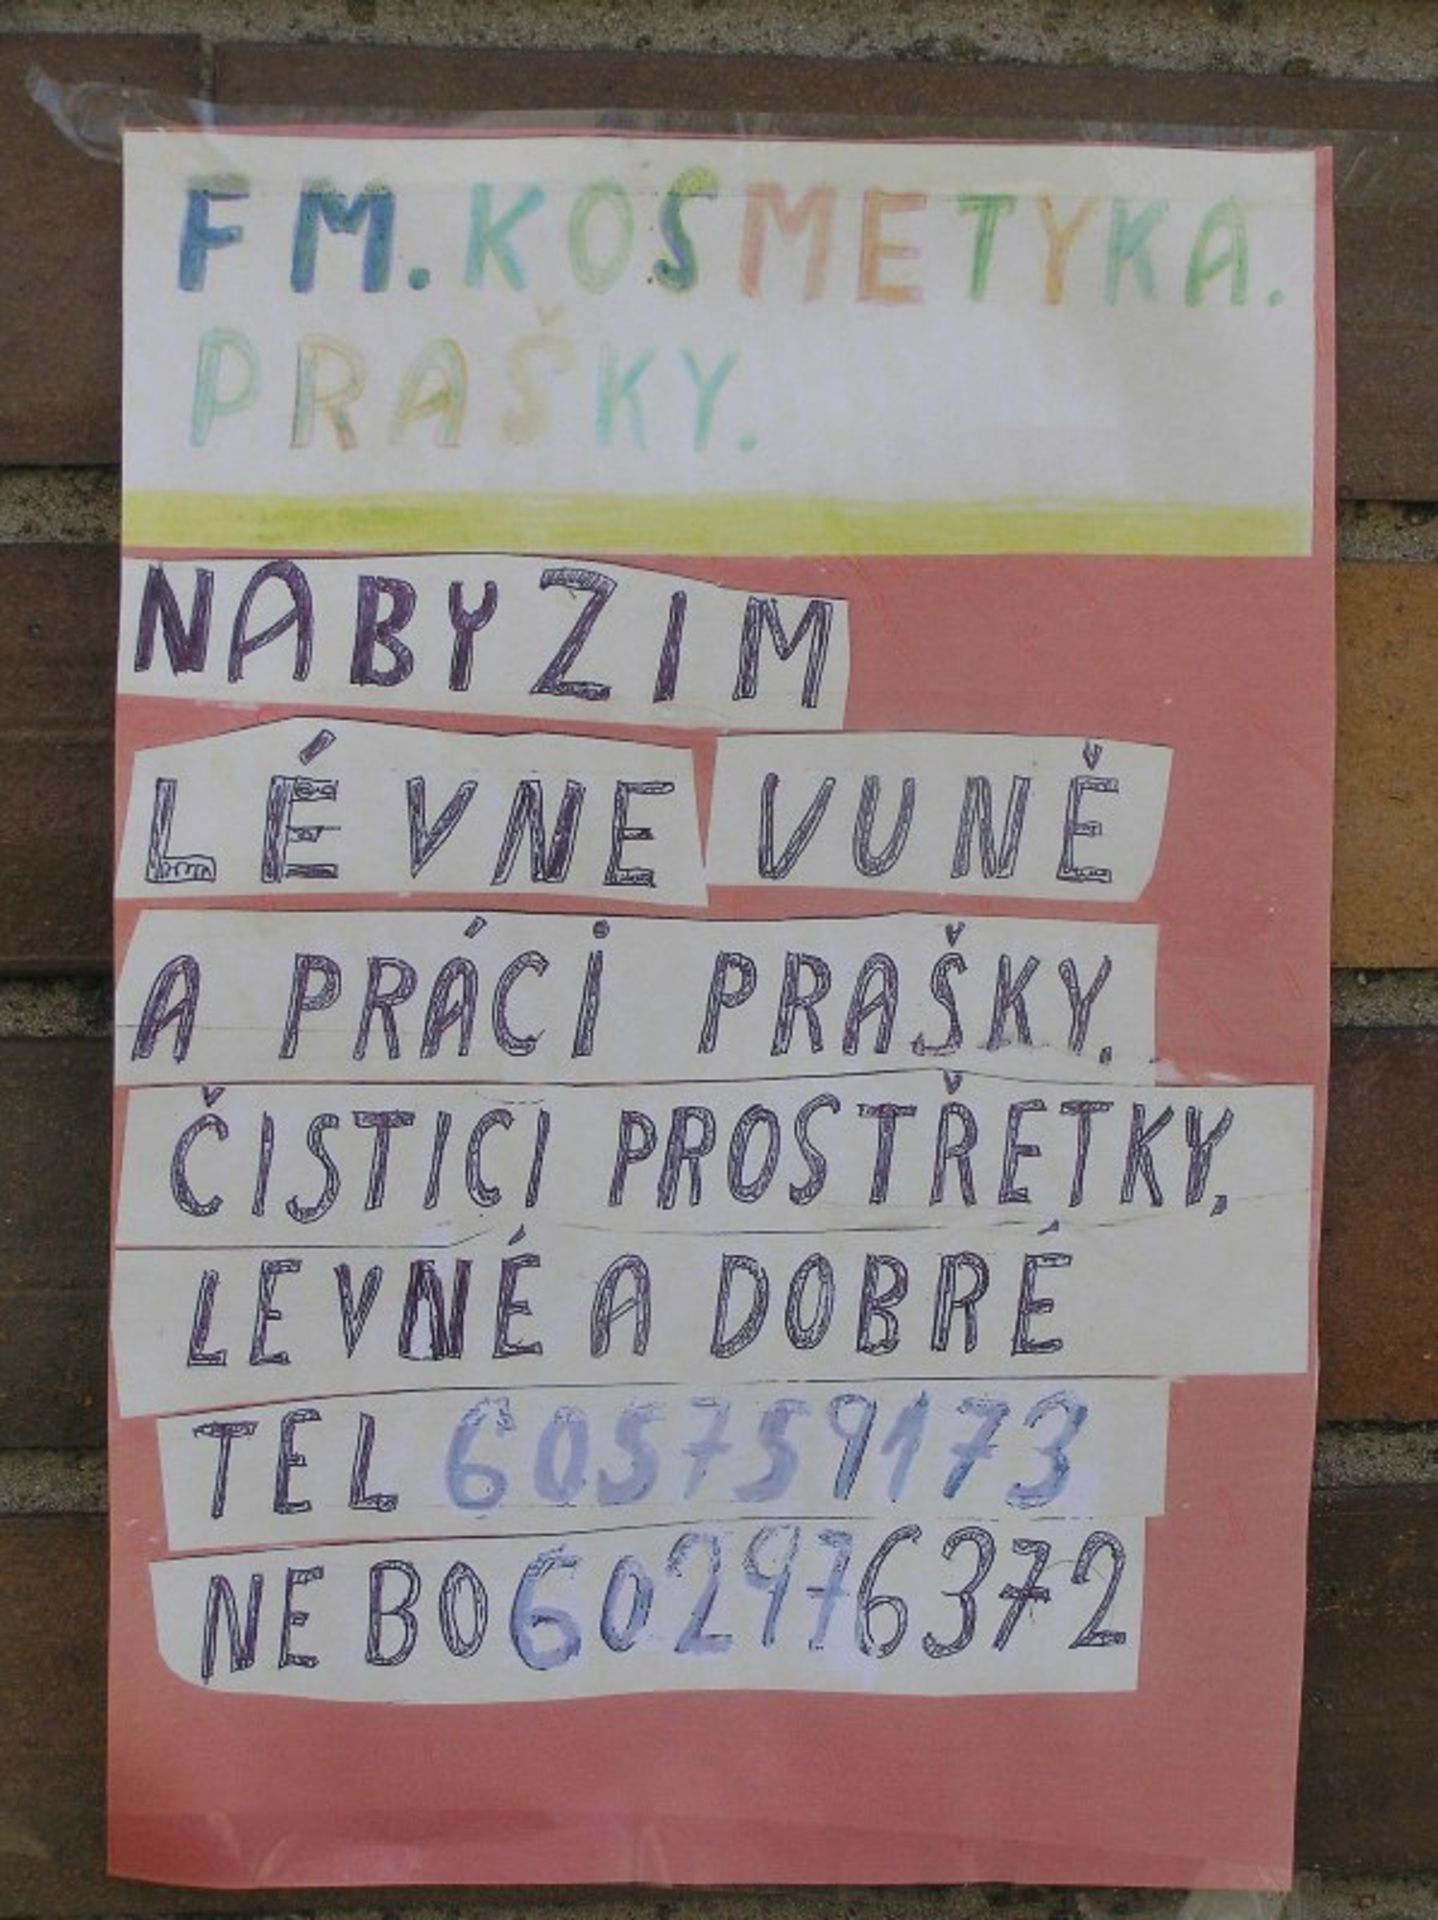 FM. KOSMETYKA.
PRAŠKY.
NABYZIM
LÉVNE VUNĚ
A PRÁCI PRAŠKY.
ČISTICI PROSTŘETKY,
LEVNÉ A DOBRÉ
TEL 605759173
NEBO 602976372